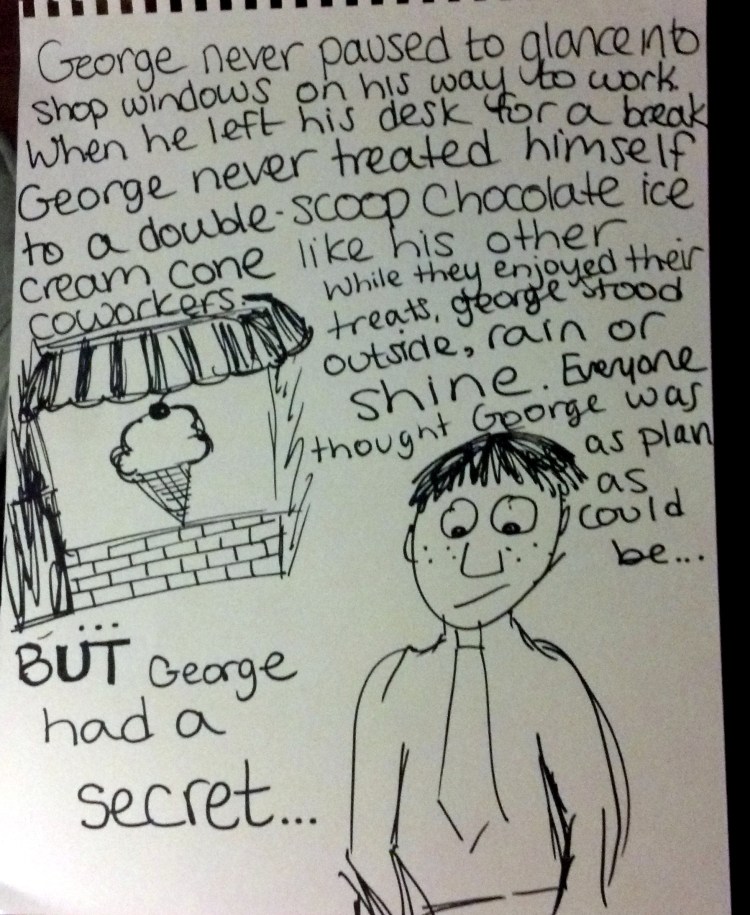 George never paused to glance into
shop windows on his way to work.
When he left his desk for a break
George never treated himself
to a double-scoop Chocolate ice
cream cone like his other
coworkers.
While they enjoyed their
treats, george stood
outside, rain or
shine. Everyone
thought George was
as plan
as
could
be...
...
BUT George
had a
secret...